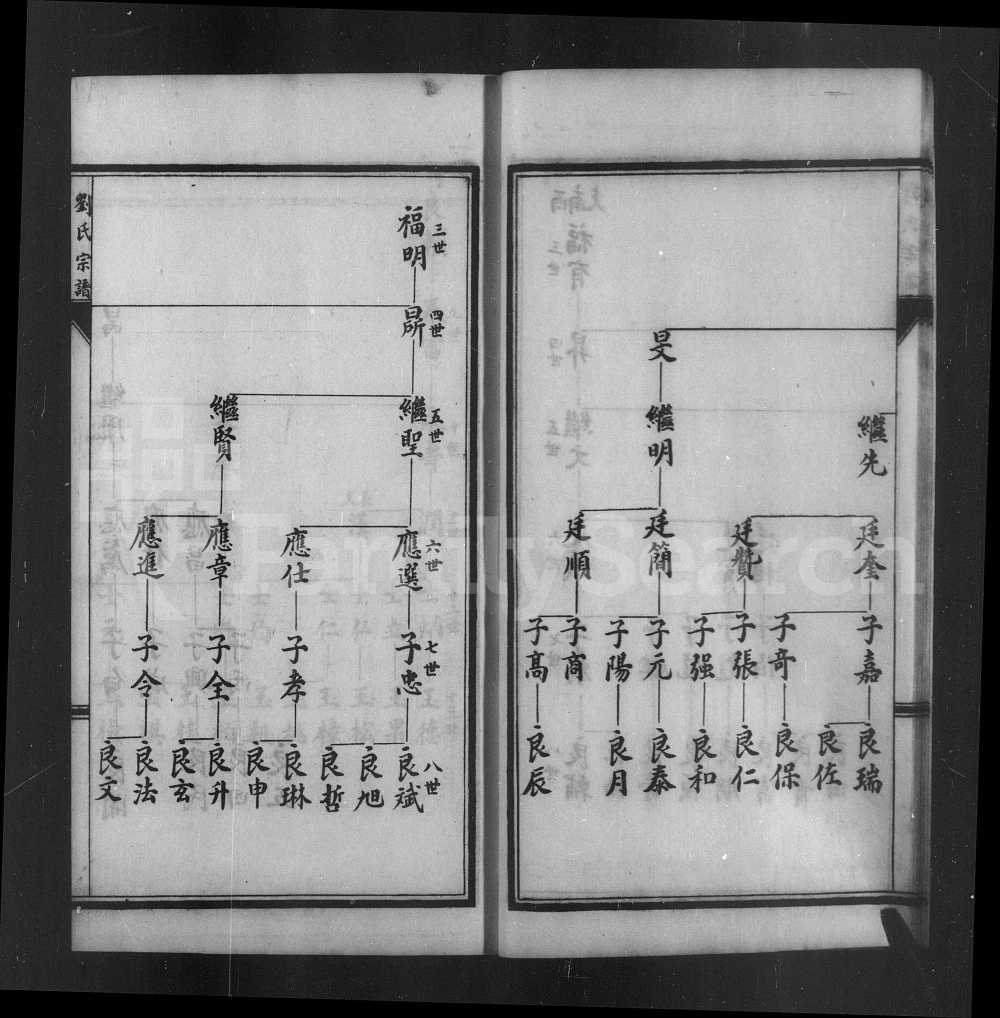 旻
繼先
繼明
廷奎
廷贊
廷簡
廷順
子嘉
子奇
子張
子强
子元
子陽
子商
子高
良瑞
良佐
良保
良仁
良和
良泰
良月
良辰
劉氏宗譜
三世
福明
四世
五世
繼聖
繼賢
六世
應選
應仕
應章
應進
七世
子忠
子孝
子全
子令
八世
良斌
良旭
良哲
良琳
良申
良升
良玄
良法
良文
FamilySearch